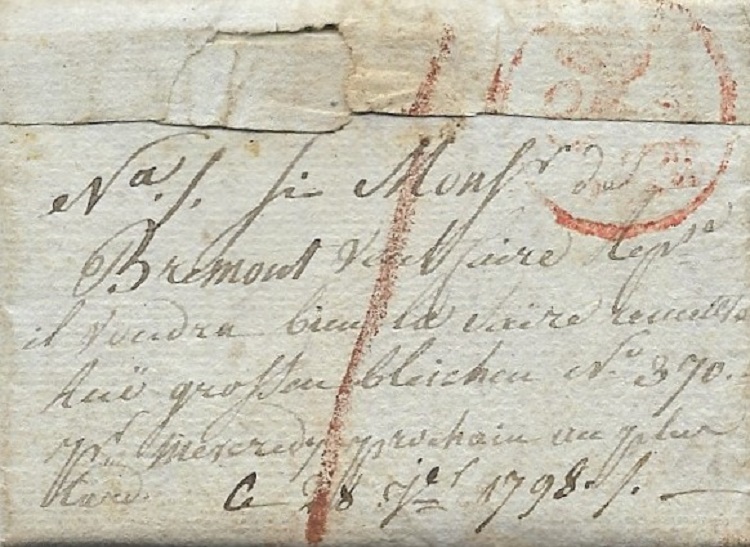 Na. /. si Monsr. du
Bremont veut faire Repse
il voudra bien la faire remettre
ruë grossen bleichen No 370.
pr. mercredy prochain au plus
tard. Ce 28 1798. /.